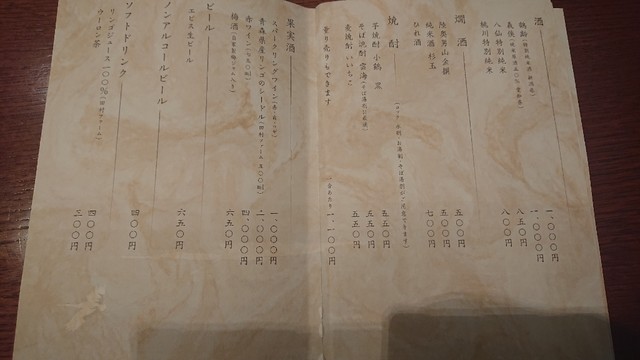 酒
鶴齢 一、〇〇〇円
義侠 一、〇〇〇円
八仙特別純米 八五〇円
桃川特別純米 八〇〇円
燗酒
陸奥男山金撰 五〇〇円
純米酒 杉玉 五〇〇円
ひれ酒 七〇〇円
焼酎
芋焼酎 小鶴 黒 五五〇円
そば焼酎 雲海(そば湯割り最適) 五五〇円
麦焼酎 いいちこ 五五〇円
量り売りもできます 一、一〇〇円
果実酒
スパークリングワイン(赤・白・ロゼ) 一、〇〇〇円
青森県産リンゴのシードル(田村ファーム 五〇〇ml) 二、〇〇〇円
赤ワイン(七五〇ml) 四、〇〇〇円
梅酒 六五〇円
ビール
エビス生ビール 六五〇円
ノンアルコールビール 四〇〇円
ソフトドリンク
リンゴジュース一〇〇%(田村ファーム) 四〇〇円
ウーロン茶 三〇〇円